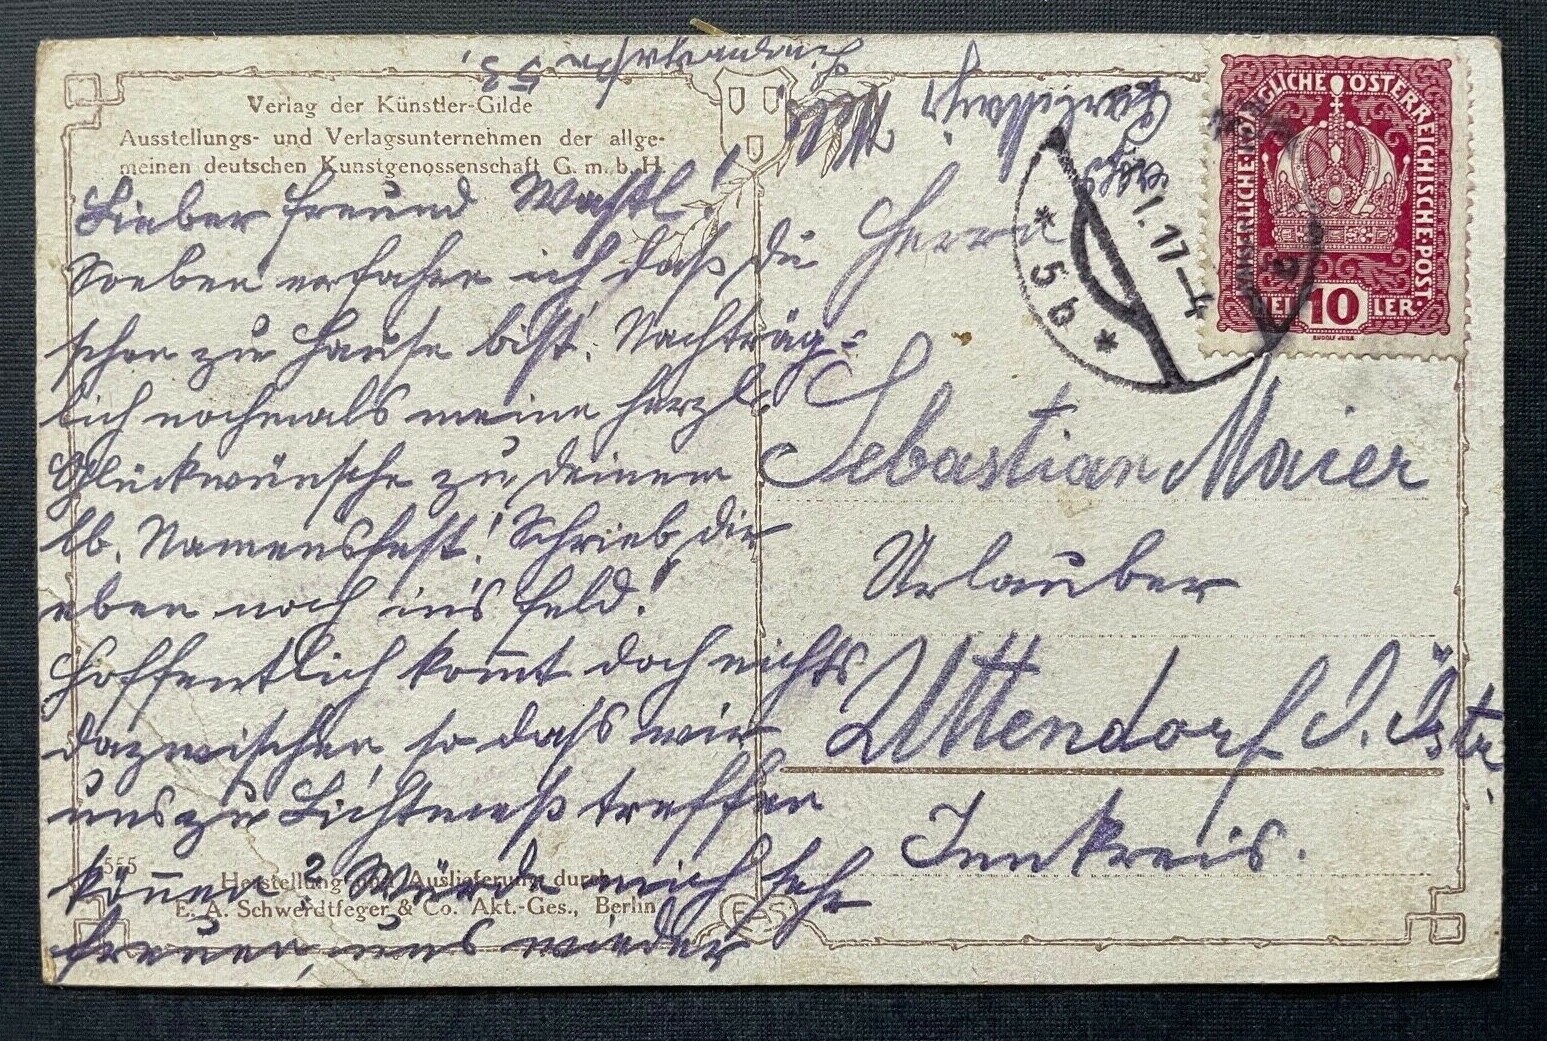 Verlag der Künstler-Gilde
Ausstellungs- und Verlagsunternehmen der allge-
meinen deutschen Kunstgenossenschaft G. m. b. H.
Lieber Freund Wastl!
Soeben erfahre ich daß du
schon zu Hause bist. Nachträg=
lich nochmals meine herzl.
Glückwünsche zu deinem
lb. Namensfest! Schrieb dir
eben noch ins Feld!
Hoffentlich kommt doch nichts
dazwischen, so daß wir
uns zu Lichtmeß treffen
können? Würde mich sehr
freuen, uns wieder
53.
555
Herstellung und Auslieferung durch
E. A. Schwerdtfeger & Co. Akt.-Ges., Berlin
EAS
KAISERLICHE KÖNIGLICHE ÖSTERREICHISCHE POST
HELLER 10 HELLER
RUDOLF JUNK
* 5b *
I. 17-4
Herrn
Sebastian Maier
Urlauber
Uttendorf O. Östr.
Innkreis.